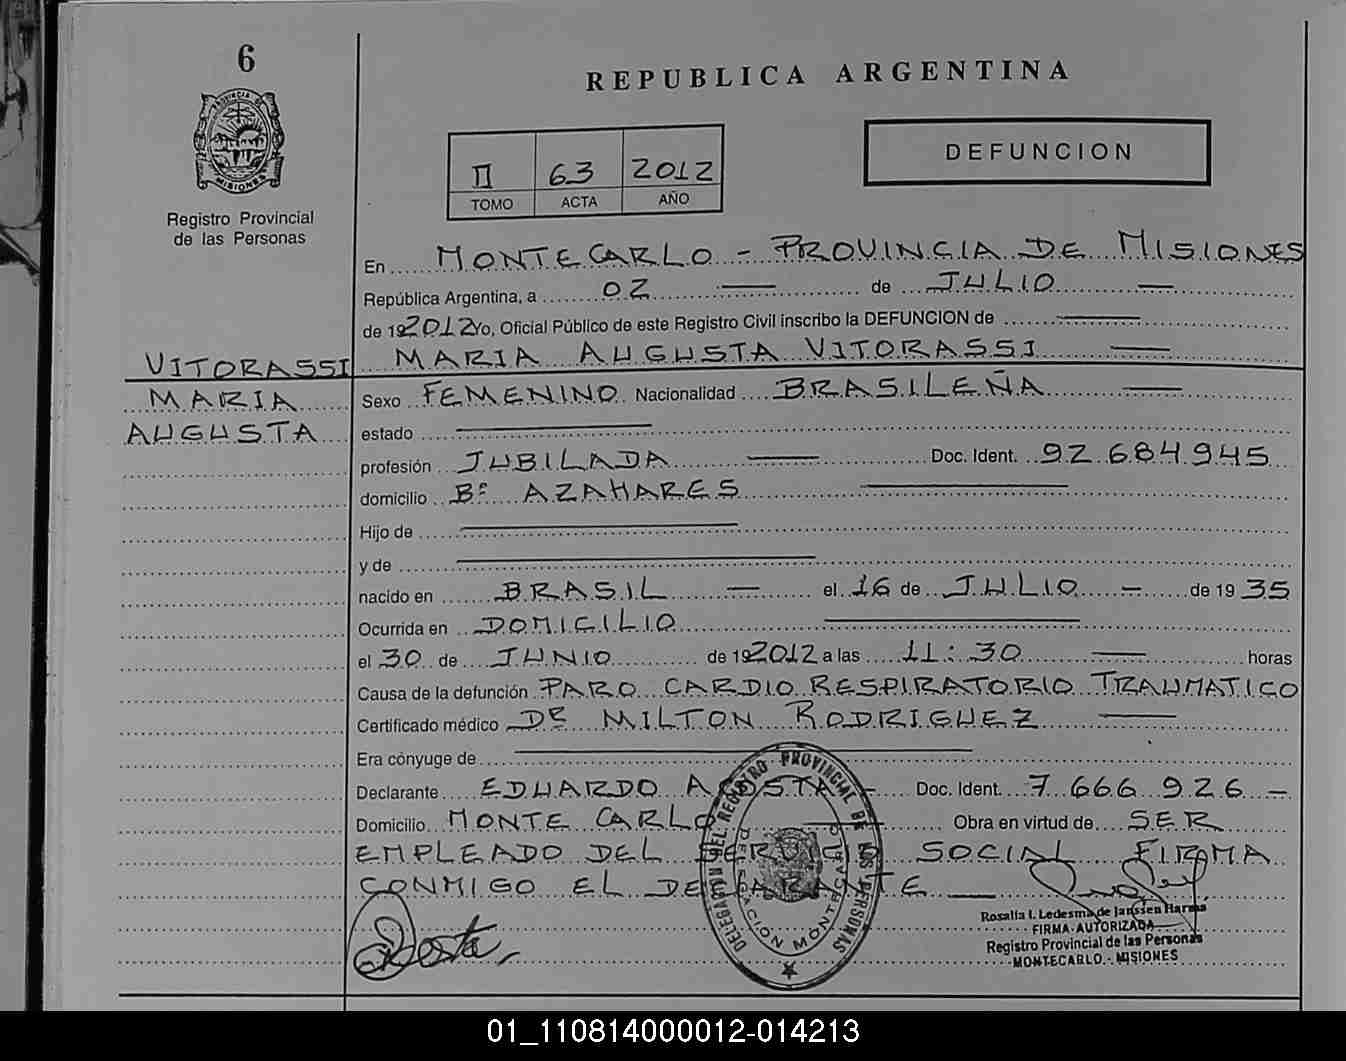 6
REPUBLICA ARGENTINA
PROVINCIA DE
MISIONES
Registro Provincial
de las Personas
II 63 2012
TOMO ACTA AÑO
DEFUNCION
En MONTECARLO - PROVINCIA DE MISIONES
República Argentina, a 02 de JULIO
de 192012 Yo, Oficial Público de este Registro Civil inscribo la DEFUNCION de
VITORASSI MARIA AUGUSTA VITORASSI
MARIA Sexo FEMENINO Nacionalidad BRASILEÑA
AUGUSTA estado
profesión JUBILADA Doc. Ident. 92 684 945
domicilio Bº AZAHARES
Hijo de
y de
nacido en BRASIL el 16 de JULIO de 19 35
Ocurrida en DOMICILIO
el 30 de JUNIO de 192012 a las 11:30 horas
Causa de la defunción PARO CARDIO RESPIRATORIO TRAUMATICO
Certificado médico Dr MILTON RODRIGUEZ
Era cónyuge de
Declarante EDUARDO ACOSTA - Doc. Ident. 7 666 926 -
Domicilio MONTE CARLO Obra en virtud de SER
EMPLEADO DEL SERVICIO SOCIAL FIRMA
CONMIGO EL DECLARANTE
DELEGACION DEL REGISTRO PROVINCIAL DE LAS PERSONAS
DELEGACION MONTECARLO
Rosalia I. Ledesma de Janssen Harms
FIRMA AUTORIZADA
Registro Provincial de las Personas
MONTECARLO - MISIONES
01_110814000012-014213